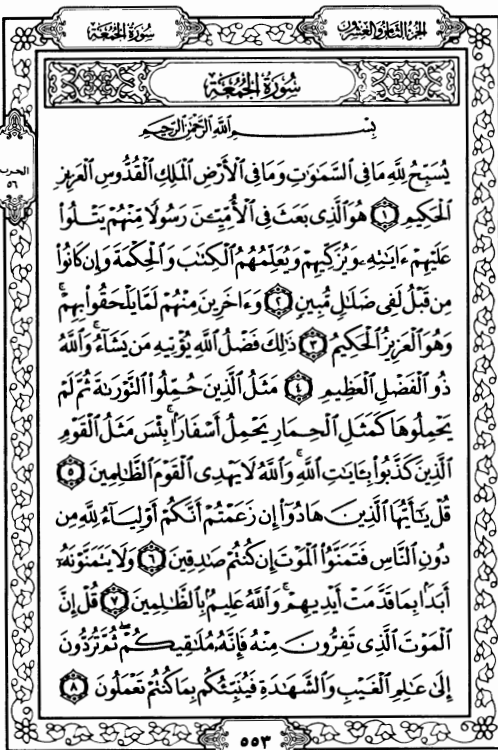 الجزء الثامن والعشرون
سورة الجمعة
سُورَةُ الجُمُعَةِ
بِسْمِ اللَّهِ الرَّحْمَٰنِ الرَّحِيمِ
الحزب
٥٦
يُسَبِّحُ لِلَّهِ مَا فِي السَّمَٰوَٰتِ وَمَا فِي الْأَرْضِ الْمَلِكِ الْقُدُّوسِ الْعَزِيزِ
الْحَكِيمِ ١ هُوَ الَّذِي بَعَثَ فِي الْأُمِّيِّـۧنَ رَسُولًا مِّنْهُمْ يَتْلُوا۟
عَلَيْهِمْ ءَايَٰتِهِۦ وَيُزَكِّيهِمْ وَيُعَلِّمُهُمُ الْكِتَٰبَ وَالْحِكْمَةَ وَإِن كَانُوا۟
مِن قَبْلُ لَفِي ضَلَٰلٍ مُّبِينٍ ٢ وَءَاخَرِينَ مِنْهُمْ لَمَّا يَلْحَقُوا۟ بِهِمْ ۚ
وَهُوَ الْعَزِيزُ الْحَكِيمُ ٣ ذَٰلِكَ فَضْلُ اللَّهِ يُؤْتِيهِ مَن يَشَآءُ ۚ وَاللَّهُ
ذُو الْفَضْلِ الْعَظِيمِ ٤ مَثَلُ الَّذِينَ حُمِّلُوا۟ التَّوْرَىٰةَ ثُمَّ لَمْ
يَحْمِلُوهَا كَمَثَلِ الْحِمَارِ يَحْمِلُ أَسْفَارًۢا ۚ بِئْسَ مَثَلُ الْقَوْمِ
الَّذِينَ كَذَّبُوا۟ بِـَٔايَٰتِ اللَّهِ ۚ وَاللَّهُ لَا يَهْدِي الْقَوْمَ الظَّٰلِمِينَ ٥
قُلْ يَٰٓأَيُّهَا الَّذِينَ هَادُوٓا۟ إِن زَعَمْتُمْ أَنَّكُمْ أَوْلِيَآءُ لِلَّهِ مِن
دُونِ النَّاسِ فَتَمَنَّوُا۟ الْمَوْتَ إِن كُنتُمْ صَٰدِقِينَ ٦ وَلَا يَتَمَنَّوْنَهُۥٓ
أَبَدًۢا بِمَا قَدَّمَتْ أَيْدِيهِمْ ۚ وَاللَّهُ عَلِيمٌۢ بِالظَّٰلِمِينَ ٧ قُلْ إِنَّ
الْمَوْتَ الَّذِي تَفِرُّونَ مِنْهُ فَإِنَّهُۥ مُلَٰقِيكُمْ ۖ ثُمَّ تُرَدُّونَ
إِلَىٰ عَٰلِمِ الْغَيْبِ وَالشَّهَٰدَةِ فَيُنَبِّئُكُم بِمَا كُنتُمْ تَعْمَلُونَ ٨
٥٥٣